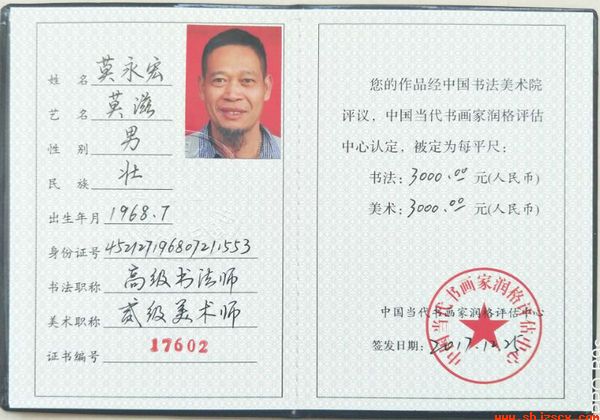 姓名 莫永宏
艺名 莫滋
性别 男
民族 壮
出生年月 1968.7
身份证号 452127196807211553
书法职称 高级书法师
美术职称 贰级美术师
证书编号 17602
您的作品经中国书法美术院
评议，中国当代书画家润格评估
中心认定，被定为每平尺：
书法：3000.00 元(人民币)
美术：3000.00 元(人民币)
中国当代书画家润格评估中心
签发日期：2017.12.25
中国当代书画家润格评估中心
www.shjzscx.com